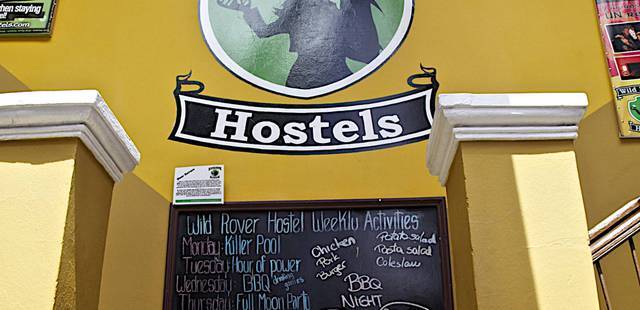 when staying
els.com
Hostels
Wild Rover Hostel Weekly Activities
Monday: Killer Pool
Tuesday: Hour of power
Wednesday: BBQ drinking games
Thursday: Full Moon Party
Chicken
Pork
Burger
Potato salad
Pasta salad
Coleslaw
BBQ
NIGHT